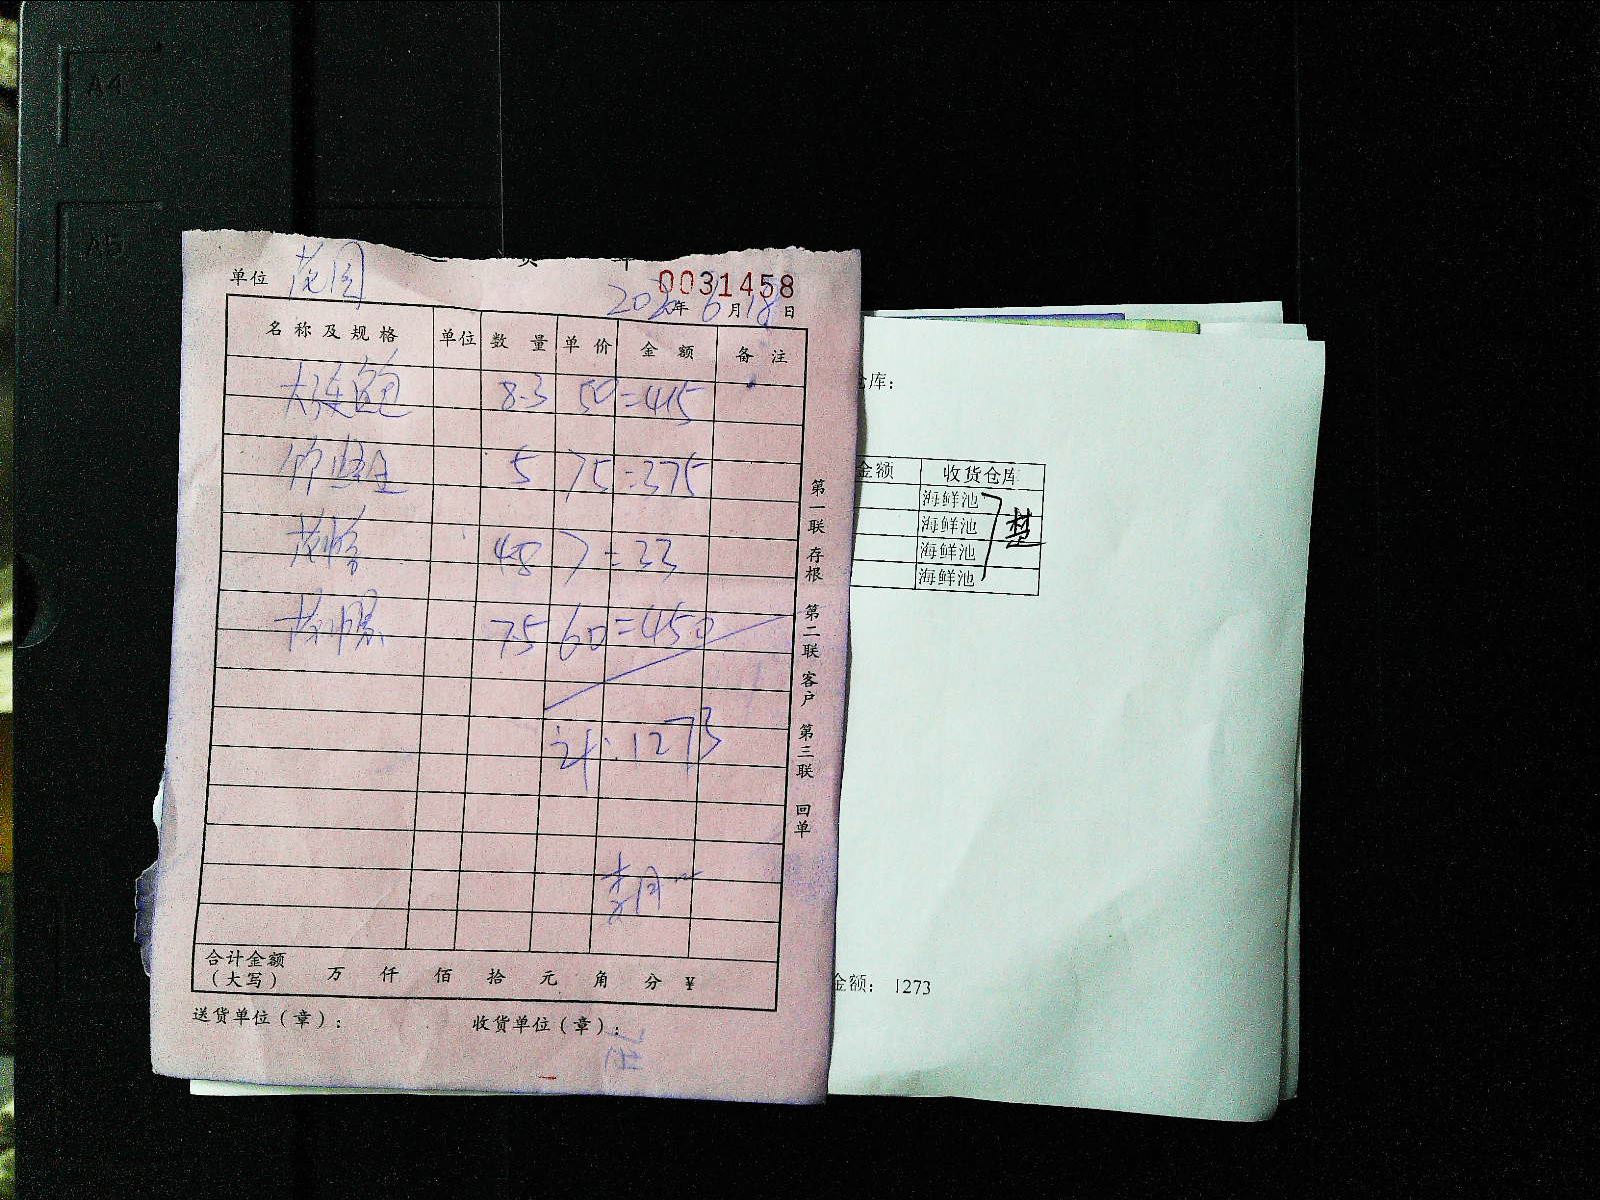 A4
A5
单位 茂园
0031458
2020年6月18日
名称及规格 单位 数量 单价 金额 备注
大连鲍 8.3 50=415
5 75=375
4.8 7=33
7.5 60=450
计:1273
合计金额
(大写) 万 仟 佰 拾 元 角 分 ¥
送货单位(章): 收货单位(章):
第一联 存根 第二联 客户 第三联 回单
仓库:
金额 收货仓库
海鲜池
海鲜池
海鲜池
海鲜池
楚
金额: 1273